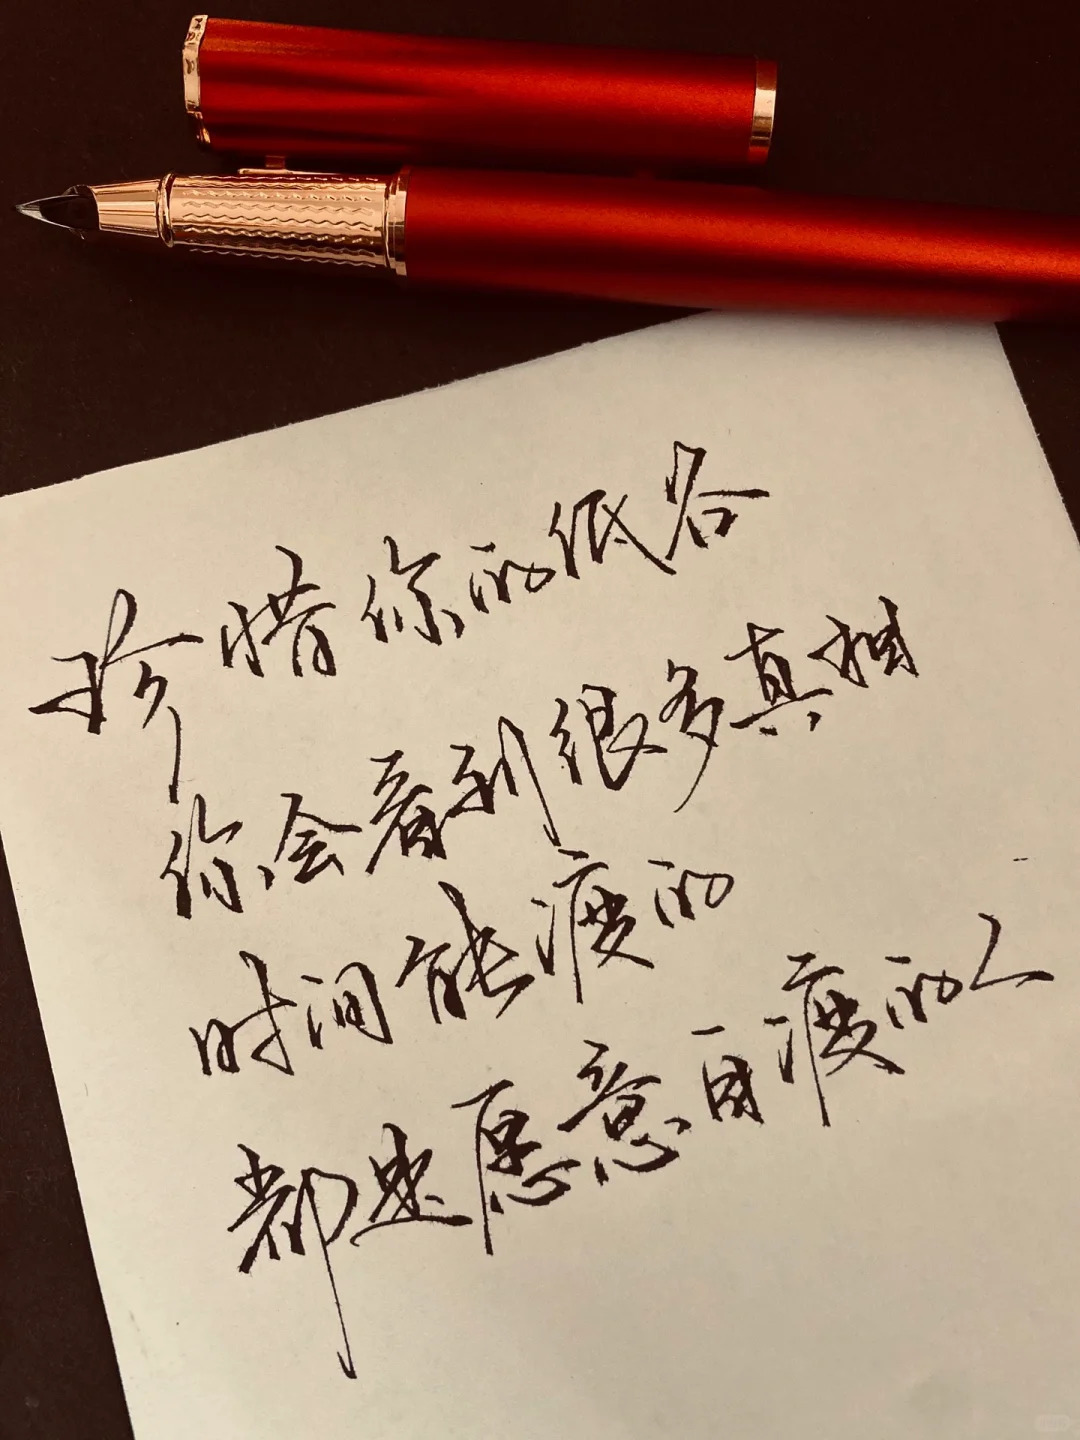 珍惜你的低谷
你会看到很多真相
时间能渡的
都是愿意自渡的人